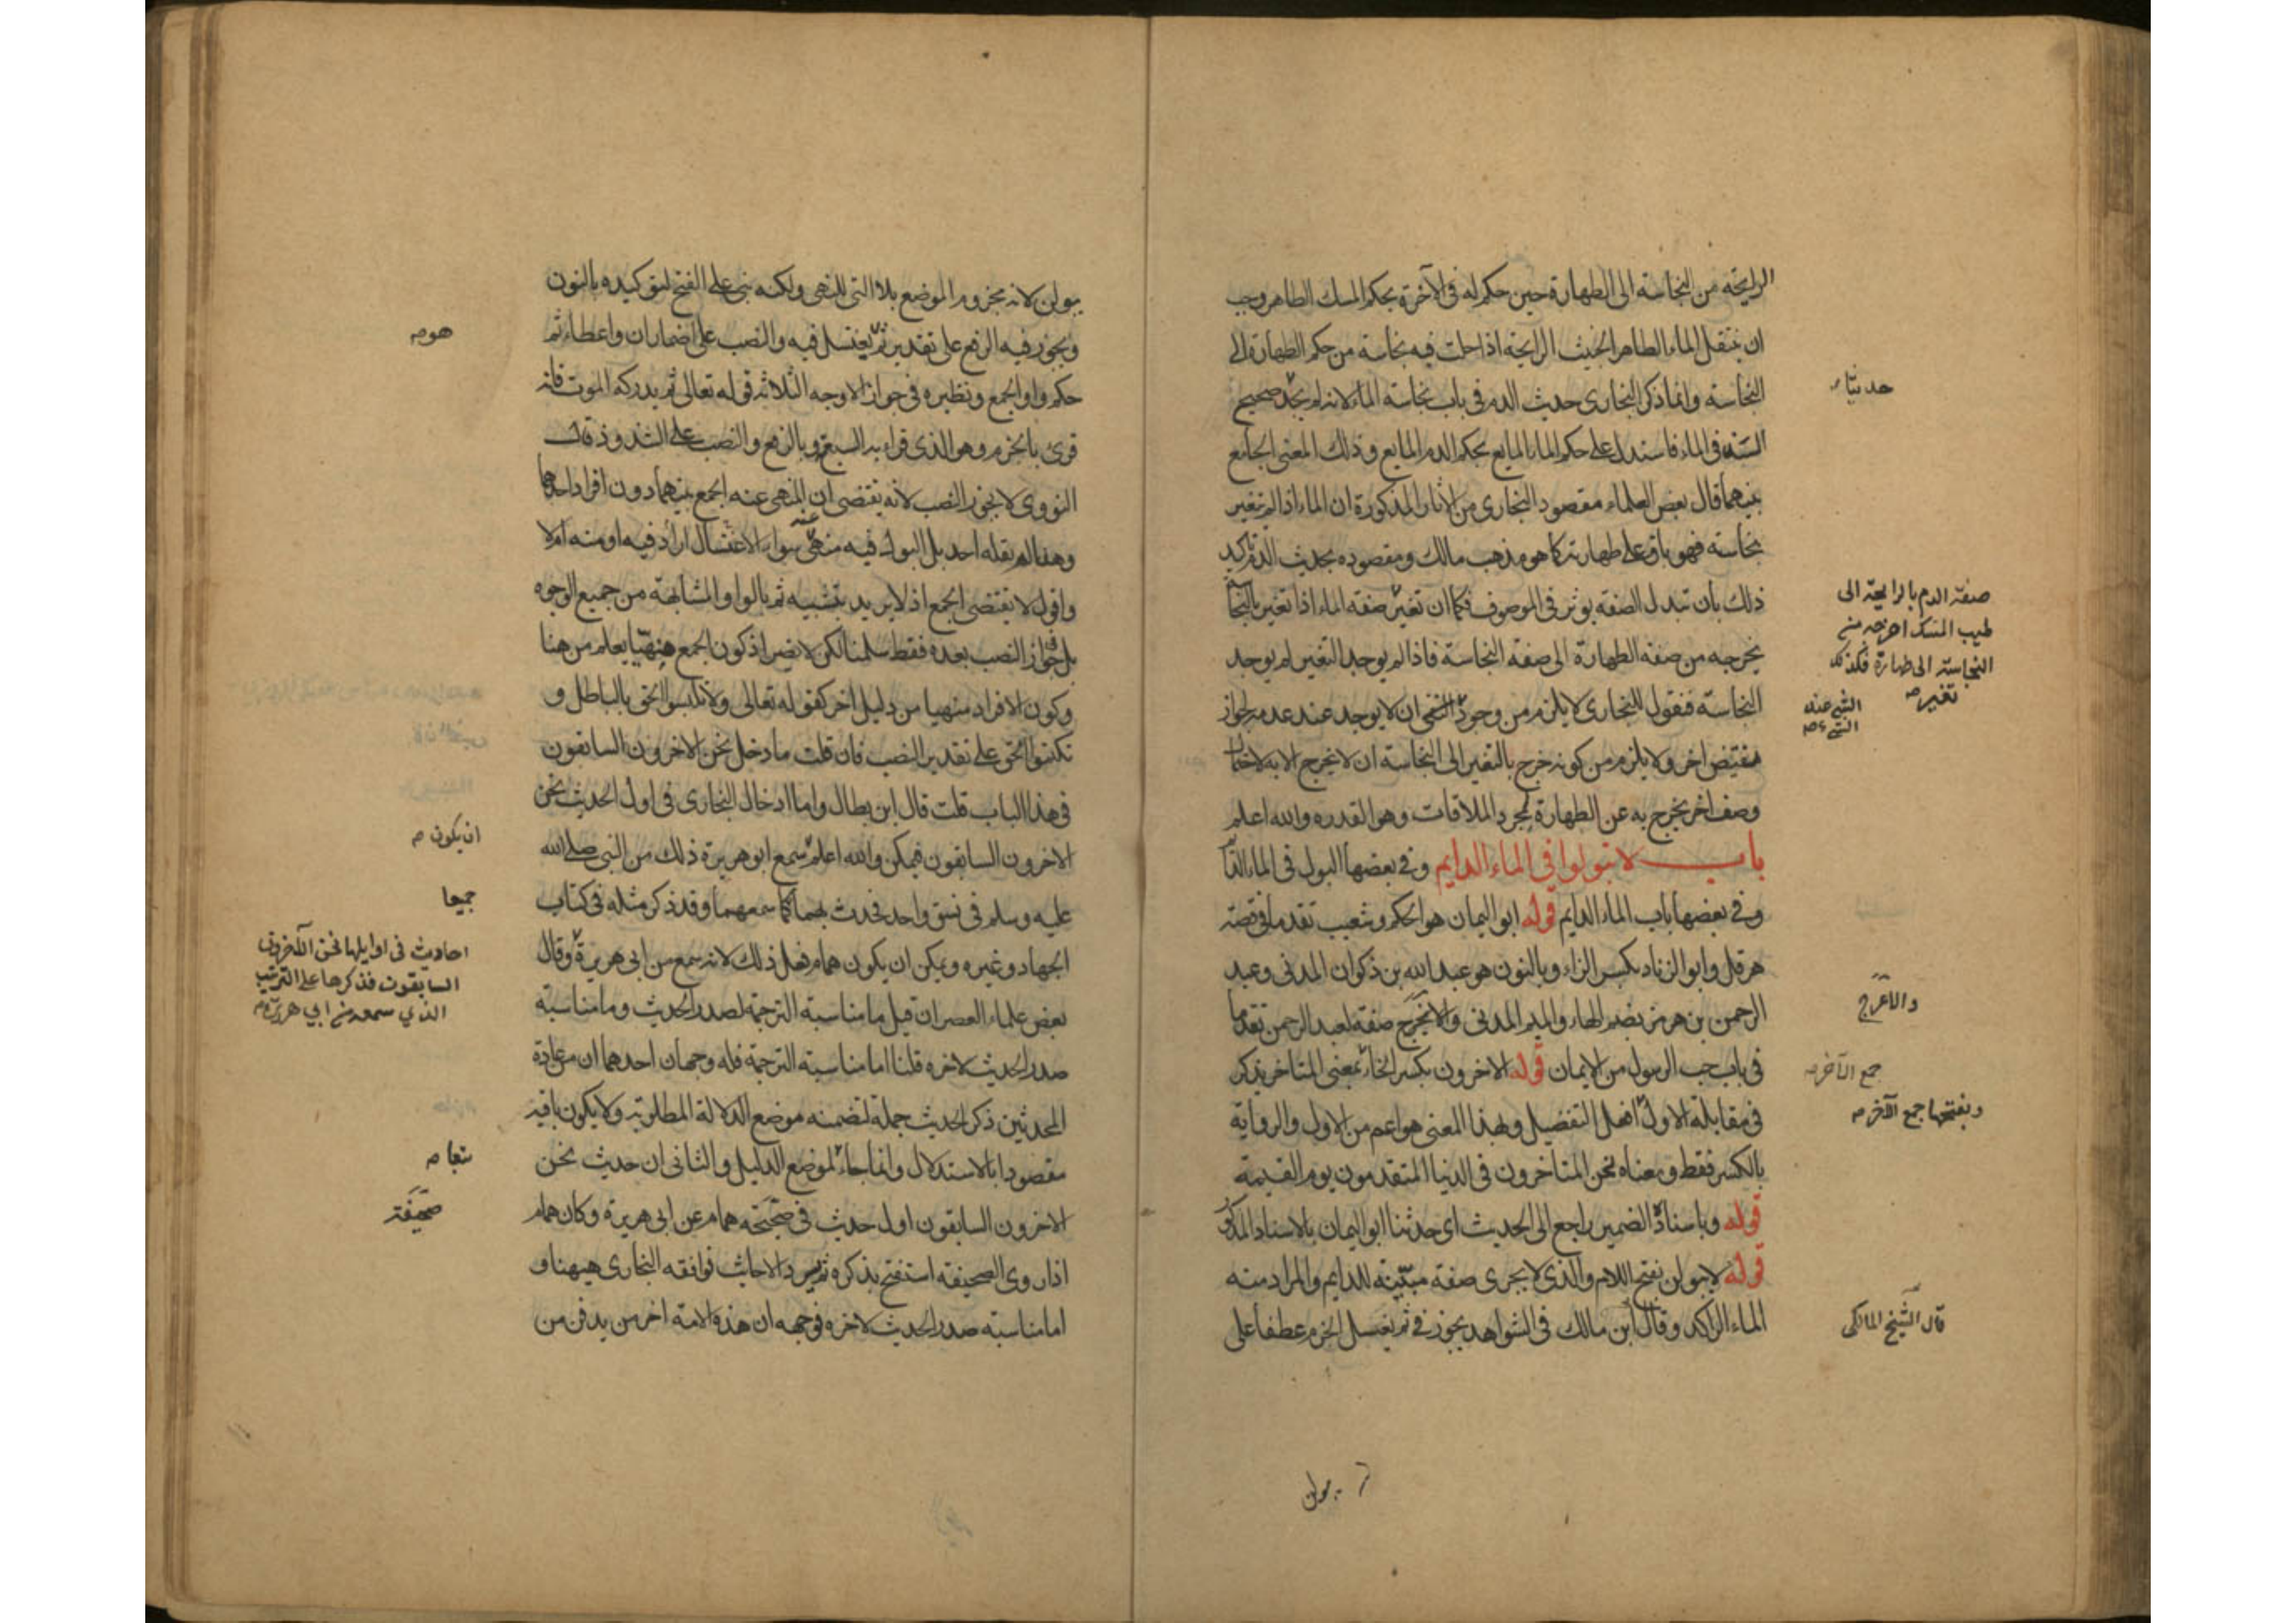 الرايحة من النجاسة الى الطهارة حين حكم له في الآخرة بحكم المسك الطاهر وجب
ان ينتقل الماء الطاهر الخبيث الرايحة اذا حلت فيه نجاسة من حكم الطهارة الى
النجاسة وانما ذكر البخارى حديث الدم فى باب نجاسة الماء لانه لم يجد صحيح
السند فى الماء فاستدل على حكم الماء المايع بحكم الدم المايع وذلك المعنى الجامع
بينهما قال بعض العلماء مقصود البخارى من الآثار المذكورة ان الماء اذا لم يتغير
بنجاسة فهو باق على طهارته كما هو مذهب مالك ومقصوده بحديث الدم تاكيد
ذلك بان تبدل الصفة يوثر فى الموصوف فكما ان تغير صفة الماء اذا تغير بالنجاسة
يخرجه من صفة الطهارة الى صفة النجاسة فاذا لم يوجد التغير لم يوجد
النجاسة فنقول للبخارى لا يلزم من وجود الشى ان لا يوجد عند عدمه لجواز
مقتض اخر ولا يلزم من كونه خرج بالتغير الى النجاسة ان لا يخرج الا به لاحتمال
وصف اخر يخرج به عن الطهارة لمجرد الملاقات وهو القدره والله اعلم
باب لا تبولوا في الماء الدايم وفى بعضها البول فى الماء الدايم
وفى بعضها باب الماء الدايم قوله ابو اليمان هو الحكم وشعيب تقدما فى قصة
هرقل وابو الزناد بكسر الزاء وبالنون هو عبد الله بن ذكوان المدنى وعبد
الرحمن بن هرمز بضم الهاء والميم المدنى والاعرج صفة لعبد الرحمن تقدما
فى باب حب الرسول من الايمان قوله الاخرون بكسر الخاء بمعنى المتاخر يذكر
فى مقابلة الاول افعل التفضيل وبهذا المعنى هو اعم من الاول والرواية
بالكسر فقط ومعناه نحن المتاخرون فى الدنيا المتقدمون يوم القيمة
قوله وباسناده الضمير راجع الى الحديث اى حدثنا ابو اليمان بالاسناد المذكور
قوله لا يبولن بفتح اللام والذى لا يجرى صفة مبينة للدايم والمراد منه
الماء الراكد وقال ابن مالك فى الشواهد يجوز فى ثم يغتسل الجزم عطفا على
حديثا
صفة الدم بالرايحة الى
طيب المسك اخرجه من
النجاسة الى طهارة فكذلك
تغير
الشى عند
الشى
والاعرج
جمع الآخر
وبفتحها جمع الآخر
قال الشيخ المالكى
يبولن
يبولن لانه مجزوم الموضع بلا التى للنهى ولكنه بنى على الفتح لتوكيده بالنون
ويجوز فيه الرفع على تقدير ثم يغتسل فيه والنصب على اضمار ان واعطاء ثم
حكم واو الجمع ونظيره فى جواز الاوجه الثلاثة قوله تعالى ثم يدركه الموت فانه
قرئ بالجزم وهو الذى قراء به السبعة وبالرفع والنصب على الشذوذ قال
النووى لا يجوز النصب لانه يقتضى ان المنهى عنه الجمع بينهما دون افراد احدهما
وهذا لم يقله احد بل البول فيه منهى عنه سواء الاغتسال اراد فيه او منه ام لا
واقول لا يقتضى الجمع اذ لا يريد بتشبيه ثم بالواو المشابهة من جميع الوجوه
بل جواز النصب بعده فقط سلمنا لكن لا يضر اذ كون الجمع منهيا يعلم من هنا
وكون الافراد منهيا من دليل اخر كقوله تعالى ولا تلبسوا الحق بالباطل و
تكتموا الحق على تقدير النصب فان قلت ما دخل نحن الاخرون السابقون
فى هذا الباب قلت قال ابن بطال واما ادخال البخارى فى اول الحديث نحن
الاخرون السابقون فيمكن والله اعلم سمع ابو هريرة ذلك من النبى صلى الله
عليه وسلم فى نسق واحد فحدث بهما كما سمعهما وقد ذكر مثله فى كتاب
الجهاد وغيره ويمكن ان يكون همام فعل ذلك لانه سمع من ابى هريرة وقال
بعض علماء العصر ان قيل ما مناسبة الترجمة لصدر الحديث وما مناسبة
صدر الحديث لاخره قلنا اما مناسبة الترجمة فله وجهان احدهما ان من عادة
المحدثين ذكر الحديث جملة لتضمنه موضع الدلالة المطلوبة ولا يكون باقيه
مقصودا بالاستدلال وانما جاء لموضع الدليل والثانى ان حديث نحن
الاخرون السابقون اول حديث فى صحيفة همام عن ابى هريرة وكان همام
اذا روى الصحيفة استفتح بذكره ثم سرد الاحاديث فوافقه البخارى هيهنا و
اما مناسبة صدر الحديث لاخره فوجهه ان هذه الامة اخر من يدفن من
هو
ان يكون
جميعا
احاديث فى اوايلها نحن الآخرون
السابقون فذكرها على الترتيب
الذي سمعه من ابي هريرة
تبعا
صحيفة